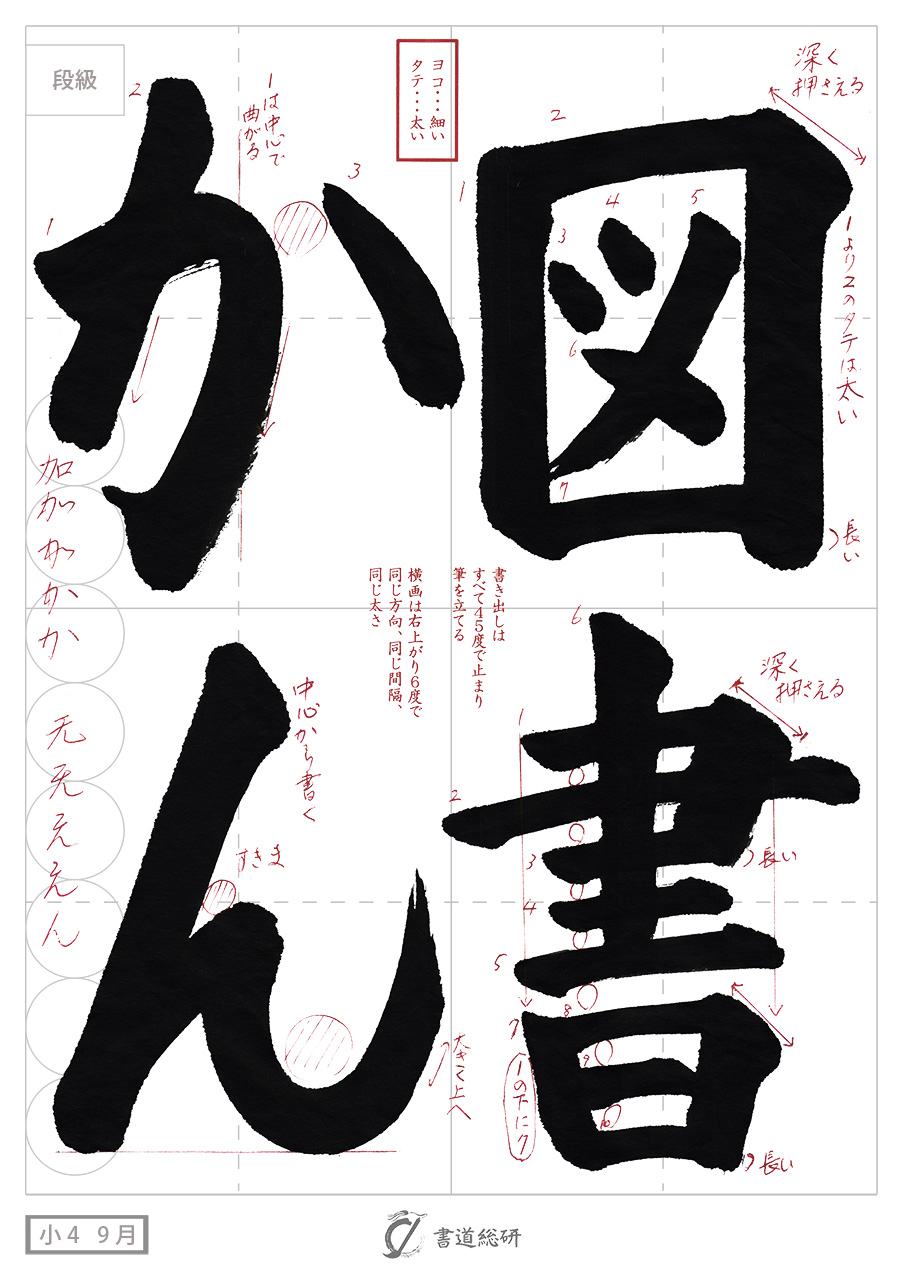 図書
かん
段級
ヨコ・・・細い
タテ・・・太い
深く
押さえる
2
1
3
4
5
6
7
1より2のタテは太い
長い
2
1は中心で
曲がる
3
1
書き出しは
すべて45度で止まり
筆を立てる
横画は右上がり6度で
同じ方向、同じ間隔、
同じ太さ
6
深く
押さえる
1
2
3
長い
4
5
7
8
9
10
1の下に7
長い
中心から書く
すきま
大きく上へ
加
か
か
か
か
无
无
え
え
ん
小4 9月
書道総研